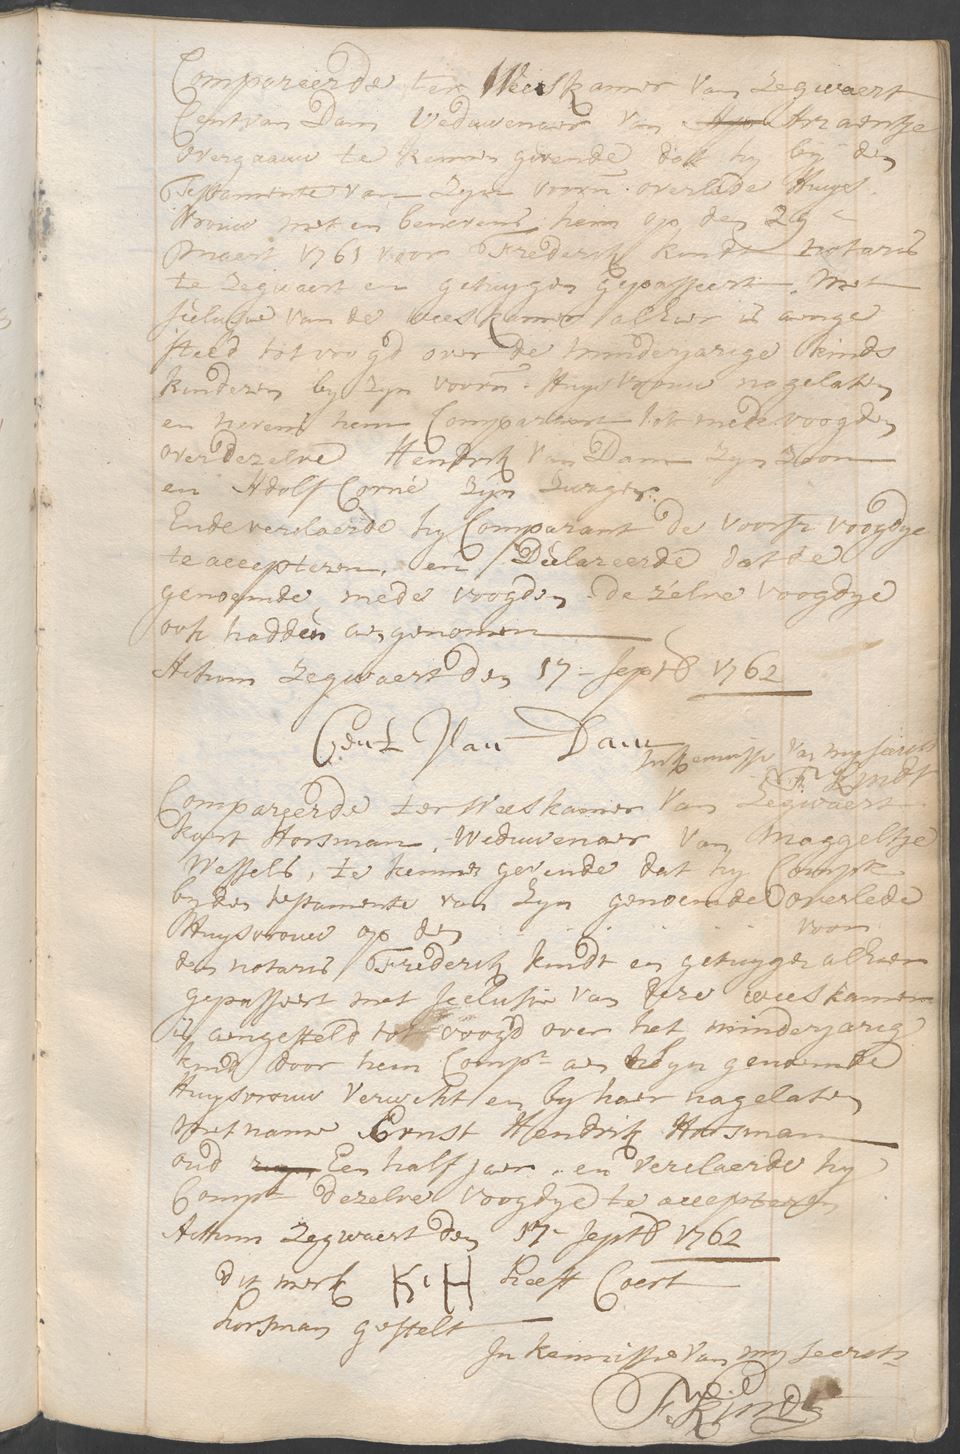 Compareerde ter Weeskamer van Zegwaert
Cent van Dam Weduwenaer van Arzaentje
overgaauw te kennen gevende dat hy by den
Testamente van zyn voorn. overlede Huys
vrouw met en benevens hem op den 29e
maert 1761 voor Frederik kindt notaris
te Zegwaert en getuygen gepasseert, Met
seclusie van de weeskamer alhier is aenge
steld tot voogd over de minderjarige kinds
kinderen by zyn voorn. Huysvrouw nagelaten
en nevens hem Comparant tot mede voogden
over dezelve Hendrik van Dam zyn zoon
en Adolf Corné zyn zwager.
Ende verclaerde hy Comparant de voorsz voogdye
te accepteren, en Declareerde dat de
genoemde mede voogden de zelve voogdye
ook hadden aengenomen
Actum Zegwaert den 17 Septb 1762
Cent Van Dam
In kennisse van my secrets
F. Kindt
Compareerde ter Weeskamer van Zegwaert
koert Horsman, Weduwenaer van Maggeltje
Wessels, te kennen gevende dat hy Compt
by den testamente van zyn genoemde overlede
Huysvrouw op den . . . . . . . . voor
den notaris Frederik kindt en getuygen alhier
gepasseert met seclusie van deze weeskamer
is aengesteld tot voogd over het minderjarig
kind door hem Compt aen zyn genoemde
Huysvrouw verwekt en by haer nagelaten
met name Ernst Hendrik Horsman
oud Een half jaer, en verclaerde hy
Compt dezelve voogdye te accepteren
Actum Zegwaert den 17 Septb 1762
dit merk K H heeft Coert
horsman gestelt
In kennisse van my secrets
F. Kindt